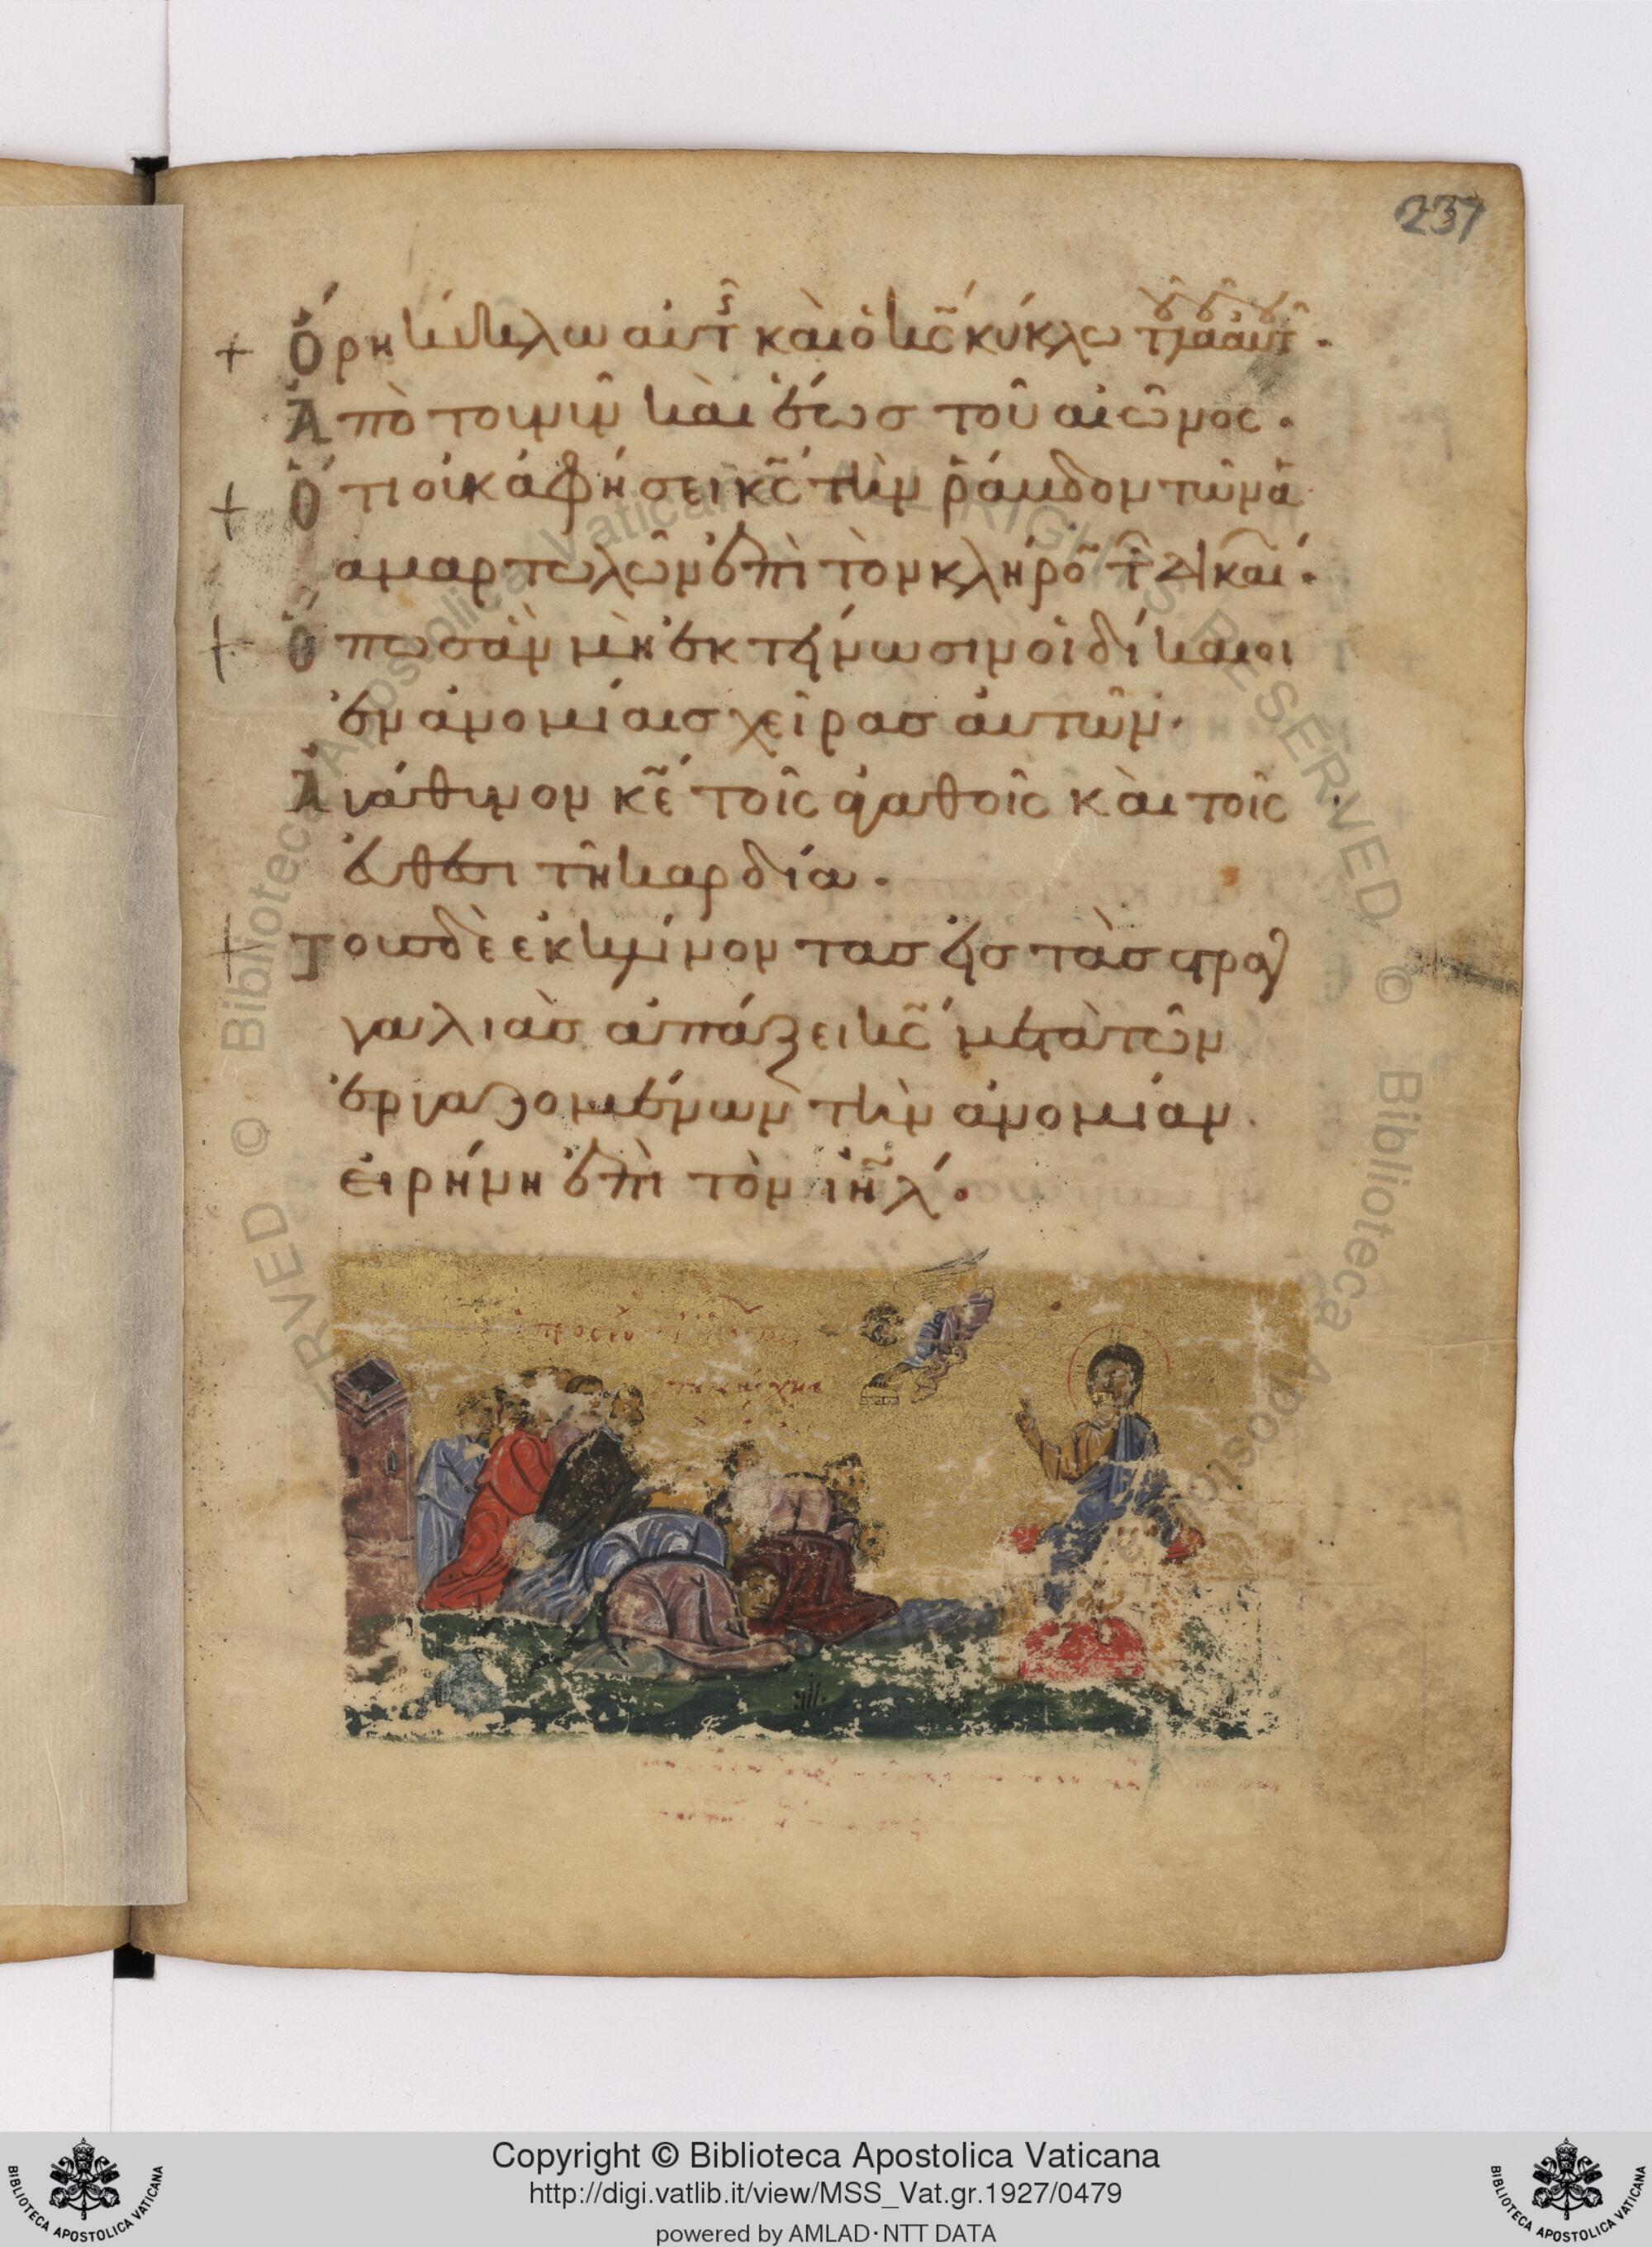 237
Ὄρη κύκλω αὐτῆς καὶ ὁ κς κύκλω τοῦ λαοῦ αὐτοῦ·
Ἀπὸ τοῦ νῦν καὶ ἕως τοῦ αἰῶνος·
Ὅτι οὐκ ἀφήσει κς τὴν ῥάβδον τῶν
ἁμαρτωλῶν ἐπὶ τὸν κλῆρον τῶν δικαί·
Ὅπως ἂν μὴ ἐκτείνωσιν οἱ δίκαιοι
ἐν ἀνομίαις χεῖρας αὐτῶν·
Ἀγάθυνον κε τοῖς ἀγαθοῖς καὶ τοῖς
εὐθέσι τῆ καρδία·
Τοὺς δὲ ἐκκλίνοντας εἰς τὰς στραγ
γαλιὰς ἀπάξει κς μετὰ τῶν
ἐργαζομένων τὴν ἀνομίαν
εἰρήνη ἐπὶ τὸν ιηλ·
© Biblioteca Apostolica Vaticana ALL RIGHTS RESERVED © Biblioteca Apostolica
Copyright © Biblioteca Apostolica Vaticana
http://digi.vatlib.it/view/MSS_Vat.gr.1927/0479
powered by AMLAD·NTT DATA
BIBLIOTECA APOSTOLICA VATICANA
BIBLIOTECA APOSTOLICA VATICANA